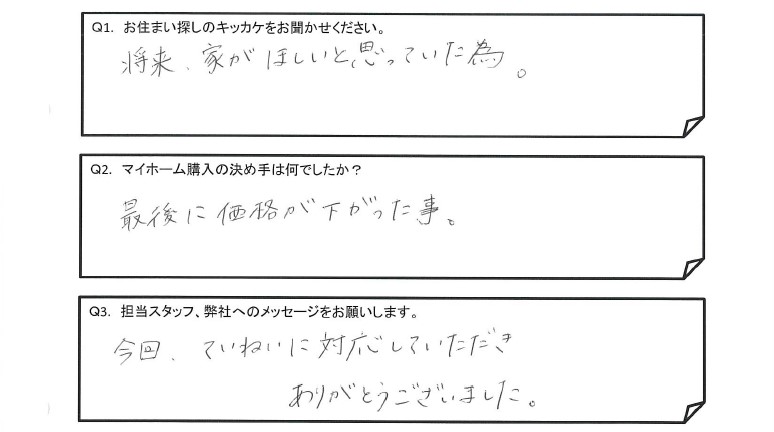 Q1. お住まい探しのキッカケをお聞かせください。
将来、家がほしいと思っていた為。
Q2. マイホーム購入の決め手は何でしたか？
最後に価格が下がった事。
Q3. 担当スタッフ、弊社へのメッセージをお願いします。
今回、ていねいに対応していただき
ありがとうございました。